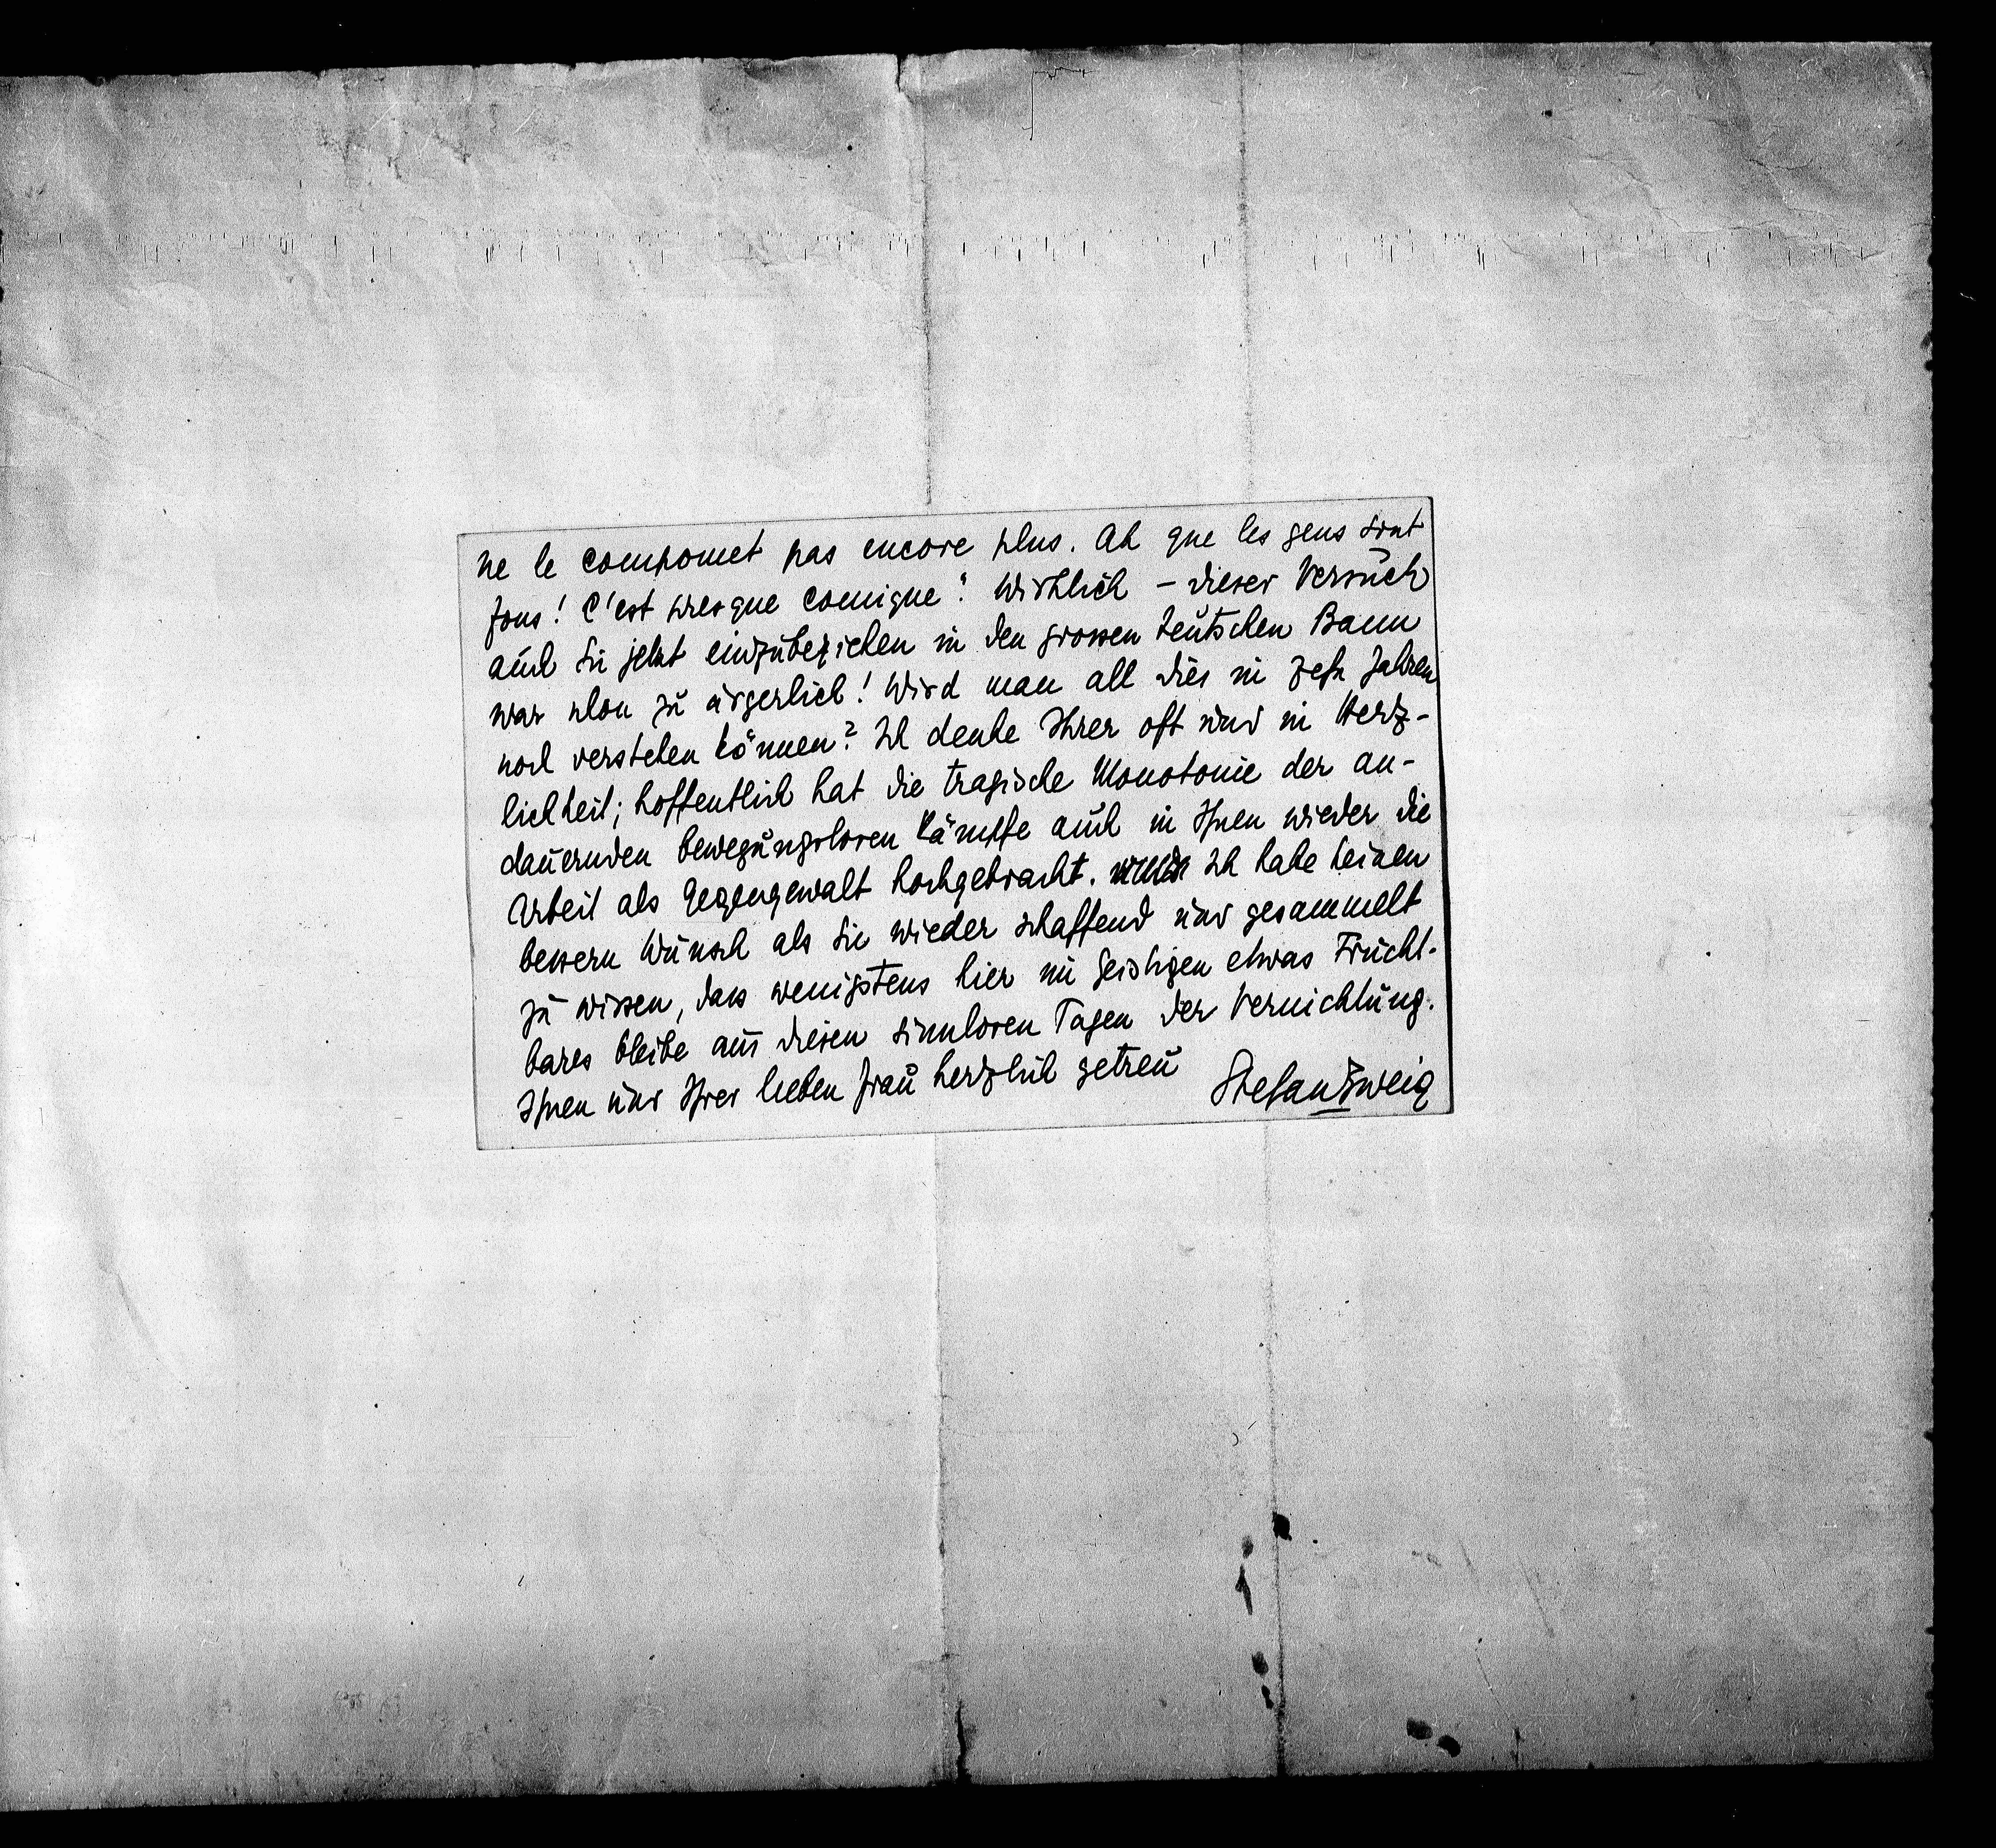 ne le compomet pas encore plus. Ah que les gens sont
fous! C'est presque comique". Wirklich – dieser Versuch
auch Sie jetzt einzubeziehen in den grossen deutschen Bann
war schon zu ärgerlich! Wird man all dies in zehn Jahren
noch verstehen können? Ich denke Ihrer oft und in Herz-
lichkeit; hoffentlich hat die tragische Monotonie der an-
dauernden bewegungslosen Kämpfe auch in Ihnen wieder die
Arbeit als Gegengewalt hochgebracht. Ich habe keinen
bessern Wunsch als Sie wieder schaffend und gesammelt
zu wissen, dass wenigstens hier im Geistigen etwas Frucht-
bares bleibe aus diesen sinnlosen Tagen der Vernichtung.
Ihnen und Ihrer lieben Frau herzlich getreu
Stefan Zweig